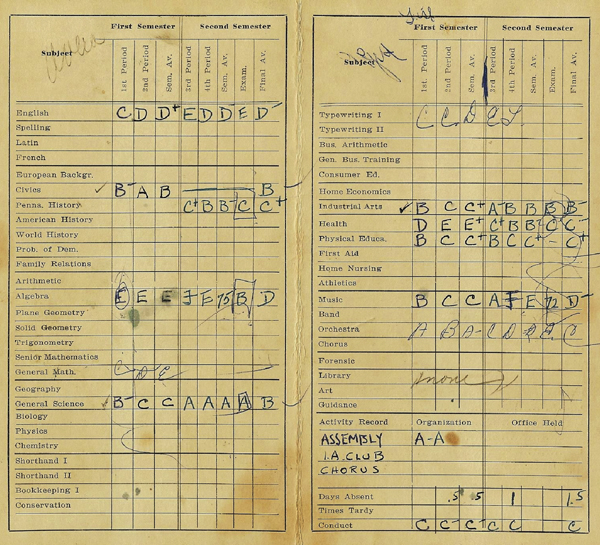 First Semester Second Semester
Subject 1st Period 2nd Period Sem. Av. 3rd Period 4th Period Sem. Av. Exam. Final Av.
English C D D+ E D D- E D-
Spelling
Latin
French
European Backgr.
Civics B- A B B
Penna. History C+ B B- C C+
American History
World History
Prob. of Dem.
Family Relations
Arithmetic
Algebra E E E E 75 B D
Plane Geometry
Solid Geometry
Trigonometry
Senior Mathematics
General Math. C D E
Geography
General Science B- C C A A A A B
Biology
Physics
Chemistry
Shorthand I
Shorthand II
Bookkeeping I
Conservation
First Semester Second Semester
Subject 1st Period 2nd Period Sem. Av. 3rd Period 4th Period Sem. Av. Exam. Final Av.
Typewriting I C C D
Typewriting II
Bus. Arithmetic
Gen. Bus. Training
Consumer Ed.
Home Economics
Industrial Arts B C C+ A- B B B B-
Health D E E+ C+ B B- C C-
Physical Educa. B C C+ B C C+ - C+
First Aid
Home Nursing
Athletics
Music B C C A F E 72 D-
Band
Orchestra A B A- C D E C
Chorus
Forensic
Library
Art
Guidance
Activity Record Organization Office Held
ASSEMBLY A-A
I.A. CLUB
CHORUS
Days Absent .5 .5 1 1.5
Times Tardy
Conduct C C- C+ C C C